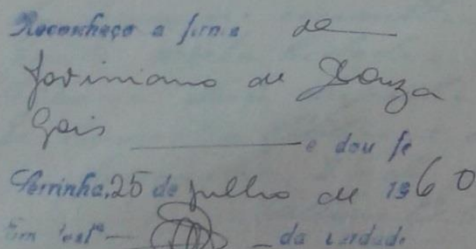 Reconheço a firma de
Joviniano de Souza
Gois e dou fé
Serrinha, 25 de Julho de 1960
Em test° da verdade